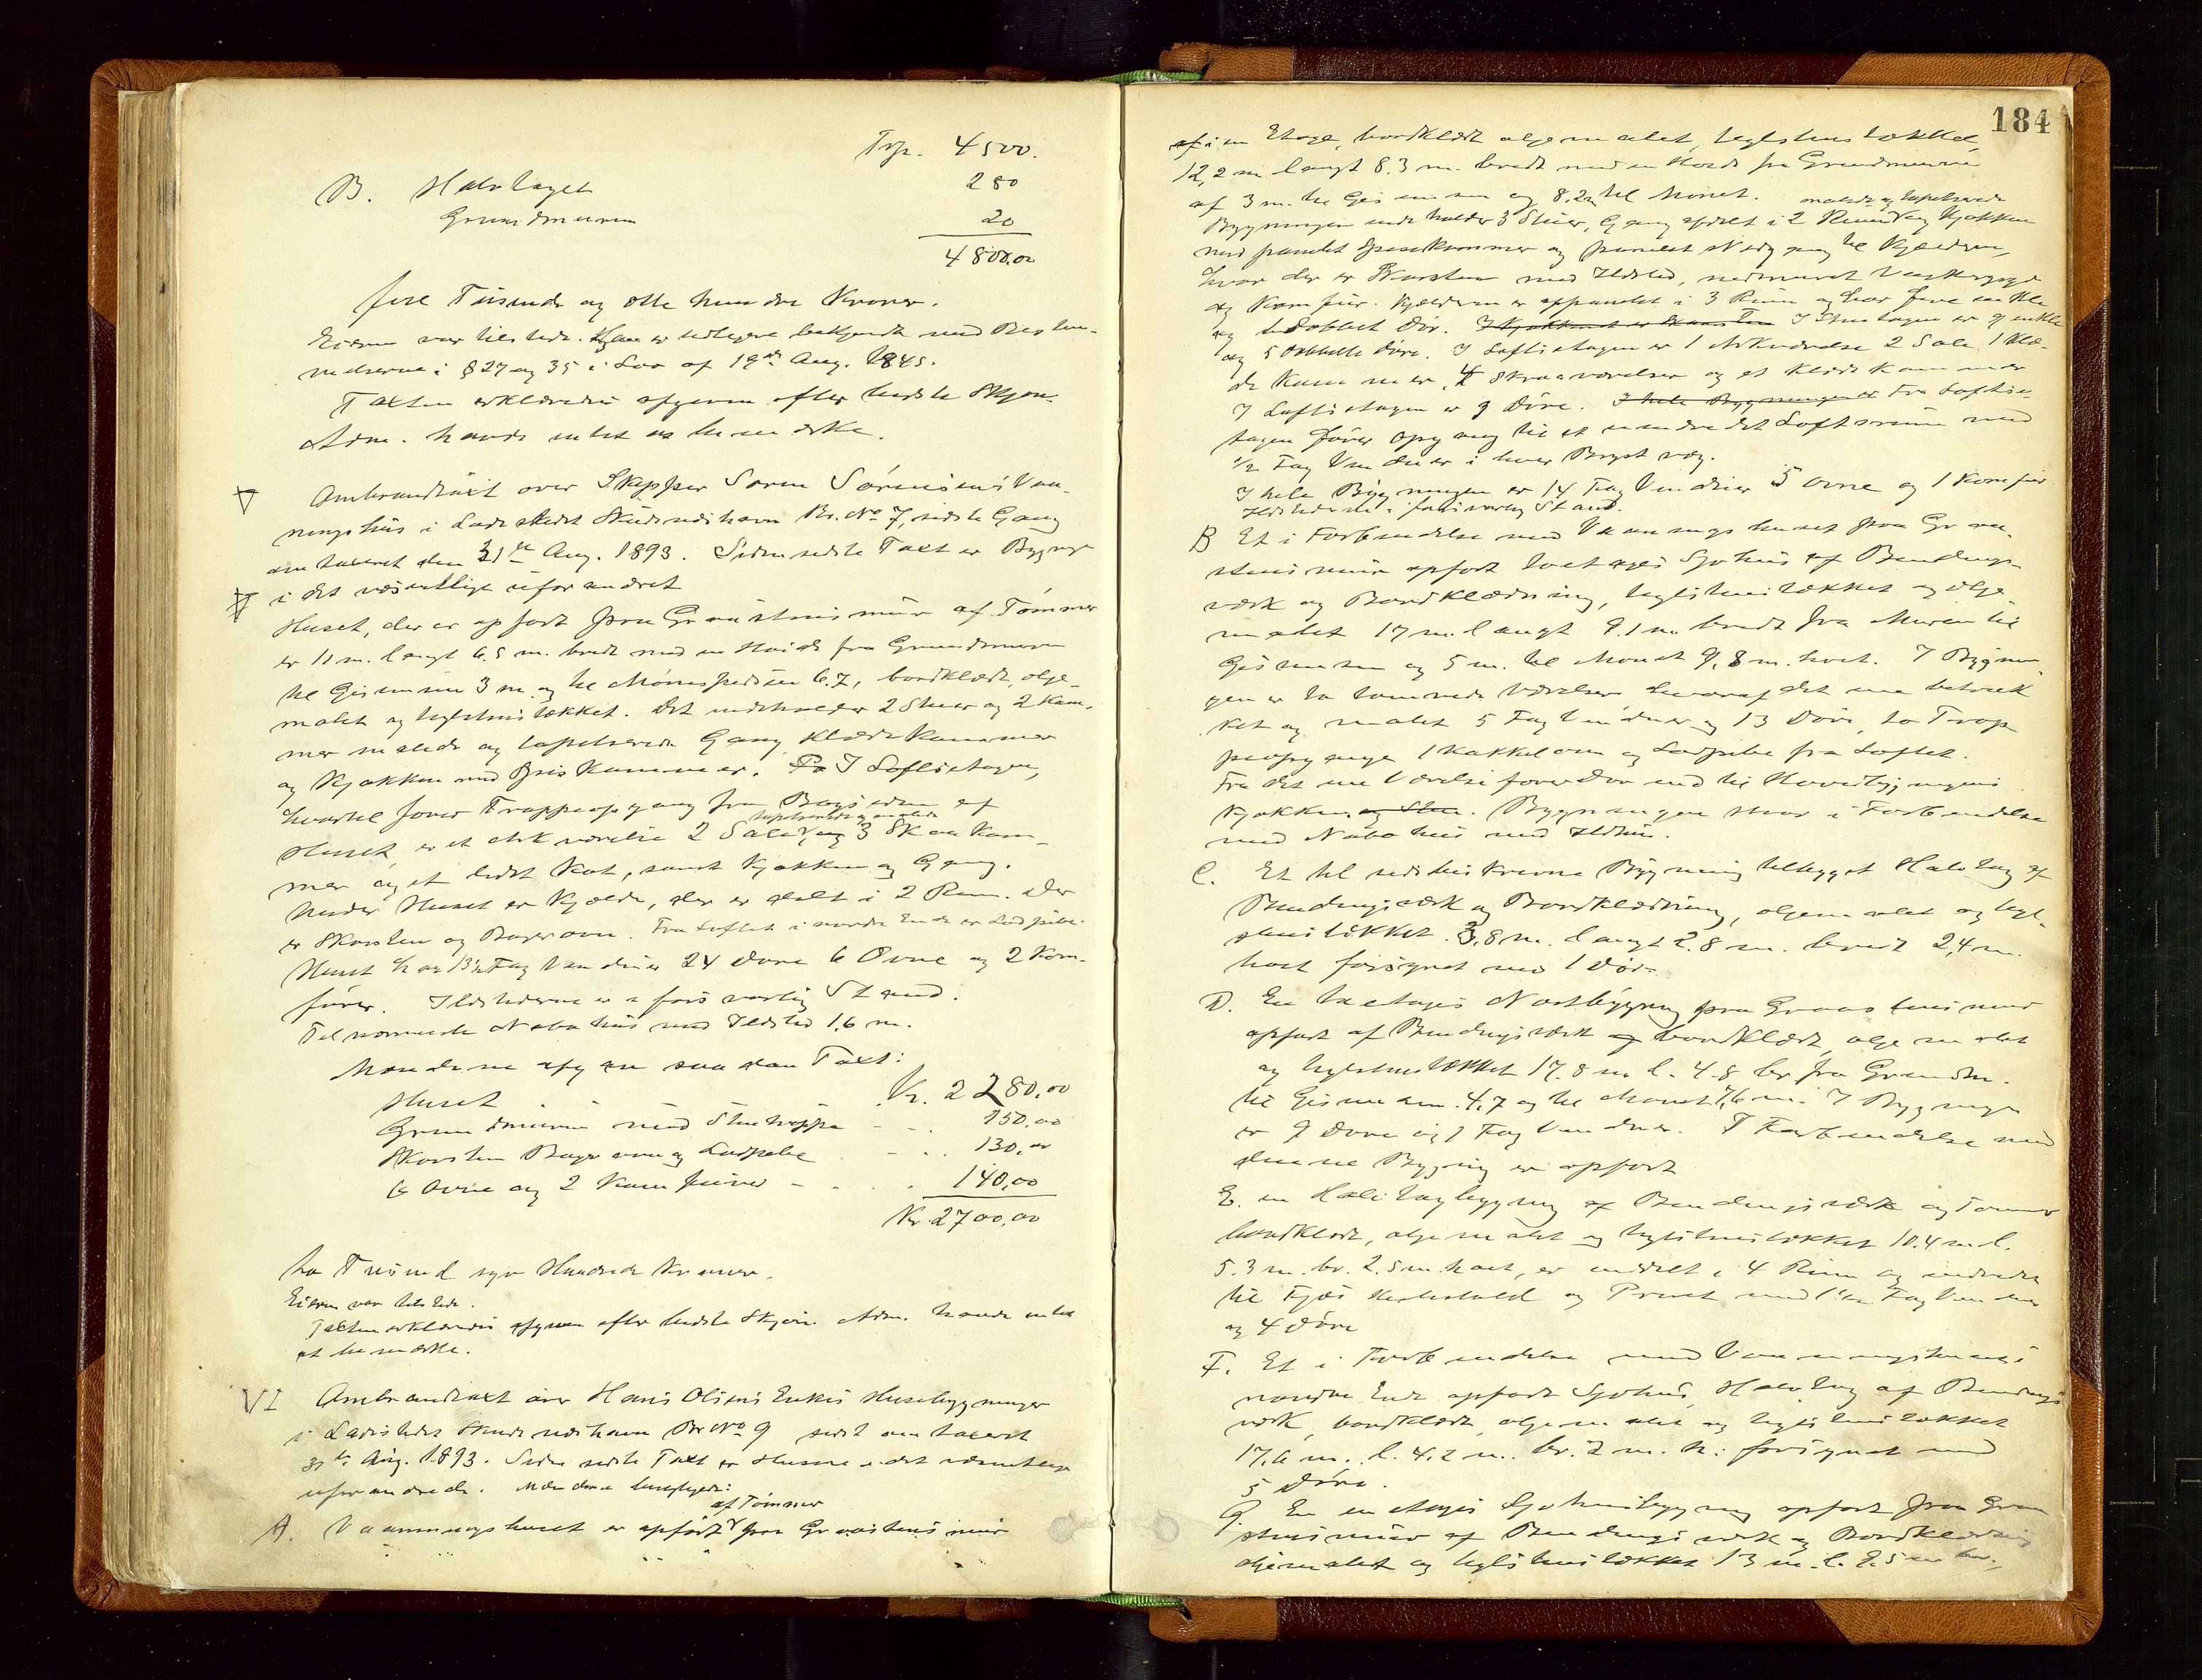 Trp. 4500.
B. Halvtaget 280
Grundmuren 20
4800,00
fire Tusinde og otte hundre Kroner.
Eieren var tilstede. Han er tidligere bekjendt med Bestem-
melserne i § 27 og 35 i Lov af 19de Aug. 1845.
Taxten erklæredes afgiven efter bedste Skjøn.
Adm. havde intet at bemærke.
V Ombrandtaxt over Skipper Søren Sørensens Vaa-
ningshus i Ladestedet Skudeneshavn Br. No 7, sidste Gang
omtaxeret den 31te Aug. 1893. Siden sidste Taxt er Bygningen
i det væsentlige uforandret
Huset, der er opført paa Graastensmur af Tømmer
er 11 m. langt 6.5 m. bredt med en Høide fra Grundmuren
til Gesimsen 3 m. og til Mønespidsen 6.7, bordklædt, olje-
malet og teglstenstækket. Det indeholder 2 Stuer og 2 Kam-
mer malede og tapetserede Gang Klædekammer
og Kjøkken med Spiskammer. I Loftsetagen,
hvortil fører Trappeopgang fra Bagsiden af
tapetserede og malede
Huset, er et Arkværelse 2 Sale og 3 Skraakam-
mer og et lidet Kot, samt Kjøkken og Gang.
Under Huset er Kjælder, der er delt i 2 Rum. Der
er Skorsten og Bagerovn. Fra Loftet i nordre Ende er Ludpibe.
Huset har 13½ Fag Vinduer 24 Døre 6 Ovne og 2 Kom-
fürer. Ildstederne er i forsvarlig Stand.
Til nærmeste Nabohus med Ildsted 1.6 m.
Mændene afgav saadan Taxt:
Huset Kr. 2280,00
Grundmuren med Stentrappe 150,00
Skorsten Bagerovn og Ludpibe 130,00
6 Ovne og 2 Komfürer 140,00
Kr. 2700,00
to Tusind syv Hundrede Kroner.
Eieren var tilstede.
Taxten erklæredes afgiven efter bedste Skjøn. Adm. havde intet
at bemærke.
VI Ombrandtaxt over Hans Olsens Enkes Husebygninger
i Ladestedet Skudeneshavn Br No 9 sidst omtaxeret
31te Aug. 1893. Siden sidste Taxt er Husene i det væsentlige
uforandrede. Mændene besigtigede:
af Tømmer
A. Vaaningshuset er opført paa Graastensmur
184
i en Etage, bordklædt oljemalet, teglstenstækket,
12,2 m langt 8.3 m. bredt med en Høide fra Grundmuren
af 3 m. til Gesimsen og 8.2 m til Mønet.
malede og tapetserede
Bygningen indeholder 3 Stuer, Gang afdelt i 2 Rum og Kjøkken
med panelet Spisekammer og panelet Nedgang til Kjælderen,
hvor der er Skorsten med Ildsted, nedmuret Vaskegryde
og Komfür. Kjælderen er oppanelet i 3 Rum og har fire enkle
og en dobbelt Dør. I Kjøkkenet er Skorsten I Stuetagen er 9 enkle
og 5 dobbelte Døre. I Loftsetagen er 1 Arkværelse 2 Sale 1 Klæ-
de Kammer, 4 Skraaværelser og et Klædekammer
I Loftsetagen er 9 Døre. I hele Bygningen er Fra Loftse-
tagen fører Opgang til et uindredet Loftsrum med
½ Fag Vinduer i hver Brystvæg.
I hele Bygningen er 14 Fag Vinduer 5 Ovne og 1 Komfür
Ildstederne i forsvarlig Stand.
B Et i Forbindelse med Vaaningshuset paa Graa-
stensmur opført toetages Sjøhus af Bindings-
værk og Bordklædning, teglstenstækket og olje-
malet 17 m. langt 9.1 m. bredt fra Muren til
Gesimsen og 5 m. til Mønet 9,8 m. høit. I Bygnin-
gen er to tømrede Værelser hvoraf det ene betræk-
ket og malet 5 Fag Vinduer og 13 Døre, to Trap-
peopgange 1 Kakkelovn og Ludpibe fra Loftet.
Fra det ene Værelse fører Dør ind til Hovedbygningens
Kjøkken og Stue. Bygningen staar i Forbindelse
med Nabohus med Ildhus.
C. Et til sidstbeskrevne Bygning tilbygget Halvtag af
Bindingsværk og Bordklædning, oljemalet og tegl-
stenstækket. 3,8 m. langt 2.8 m. bredt 2,4 m.
høit forsynet med 1 Dør.
D. En toetages Nøstbygning paa Graastensmur
opført af Bindingsværk og bordklædt, oljemalet
og teglstenstækket 17.8 m l. 4.8 br fra Grundm.
til Gesimsen 4,7 og til Mønet 7,6 m. I Bygningen
er 9 Døre og 1 Fag Vinduer. I Forbindelse med
denne Bygning er opført
E. en Halvtagbygning af Bindingsværk og Tømmer
bordklædt, oljemalet og teglstenstækket 10.4 m l.
5.3 m. br. 2.5 m. høit, er inddelt i 4 Rum og indredet
til Fjøs Hestestald og Privet med 1½ Fag Vinduer
og 4 Døre
F. Et i Forbindelse med Vaaningshusets
nordre Ende opført Sjøhus, Halvtag af Bindings-
værk, bordklædt, oljemalet og teglstenstækket
17,6 m. l. 4.2 m. br. 2 m. h. forsynet med
5 Døre.
G. En en etages Sjøhusbygning opført paa Graa-
stensmur af Bindingsværk og Bordklædning
oljemalet og teglstenstækket 13 m. l. 8.5 m br.,